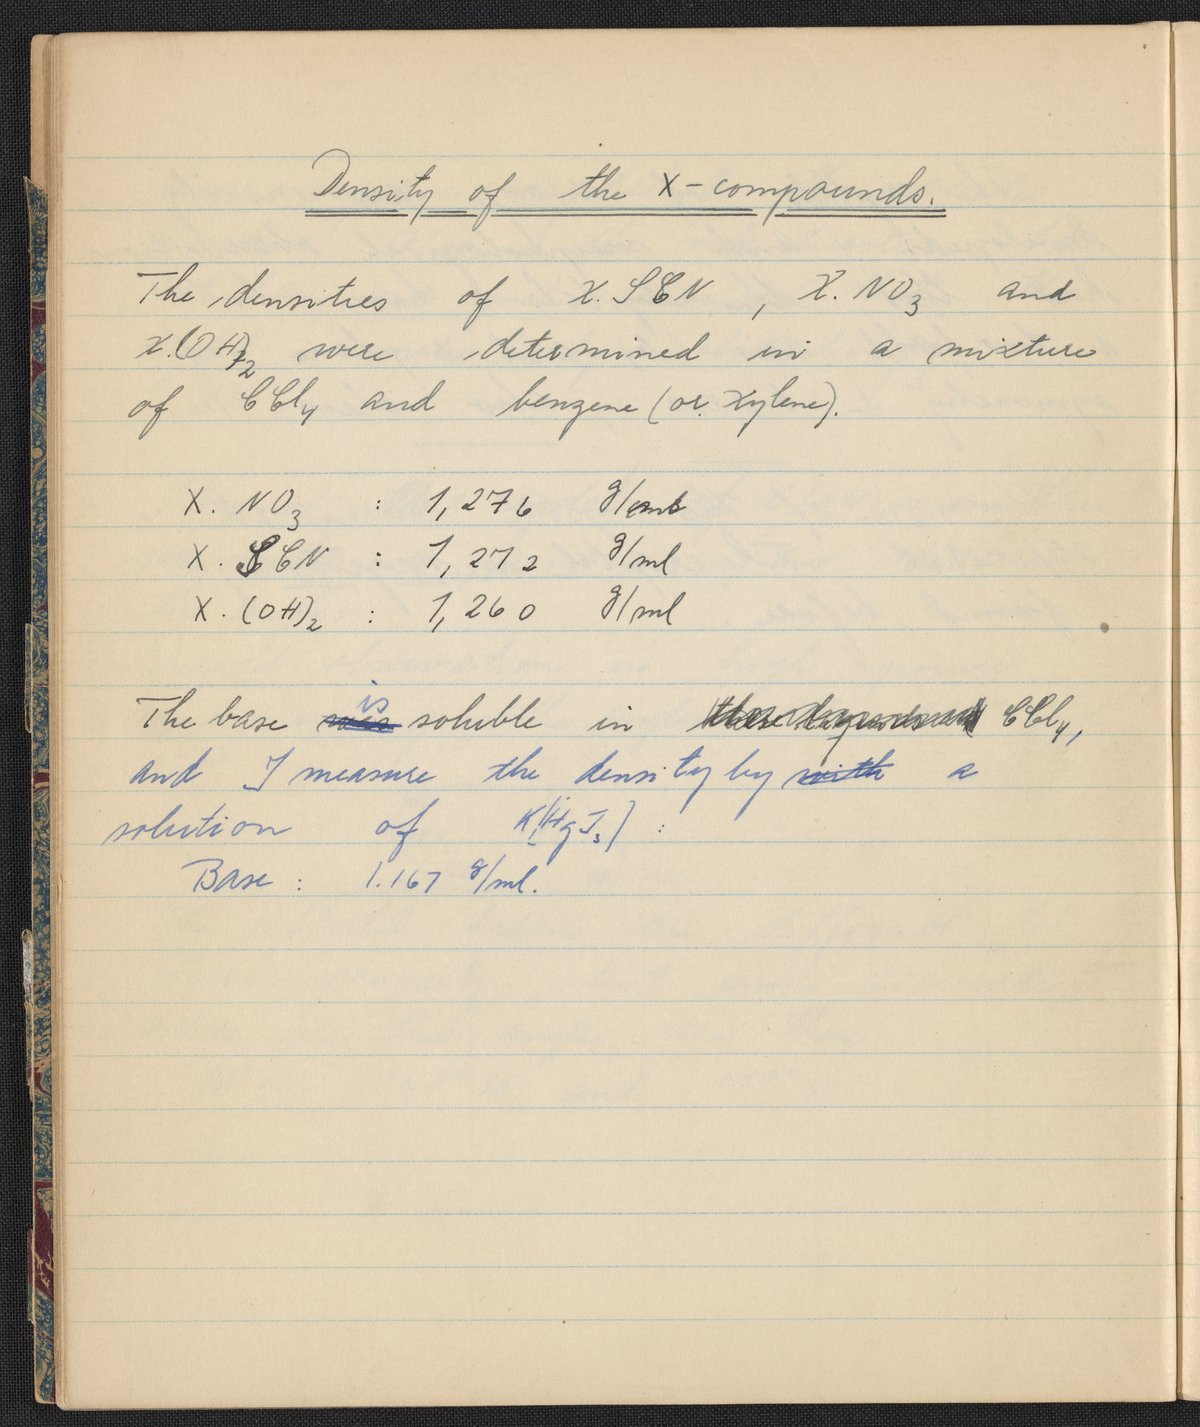 Density of the X-compounds.
The densities of X.SCN, X.NO3 and
X.(OH)2 were determined in a mixture
of CCl4 and benzene (or Xylene).
X. NO3 : 1,276 g/ml
X. SCN : 1,272 g/ml
X. (OH)2 : 1,260 g/ml
The base was is soluble in CCl4,
and I measure the density by with a
solution of K[HgI3] :
Base : 1.167 g/ml.